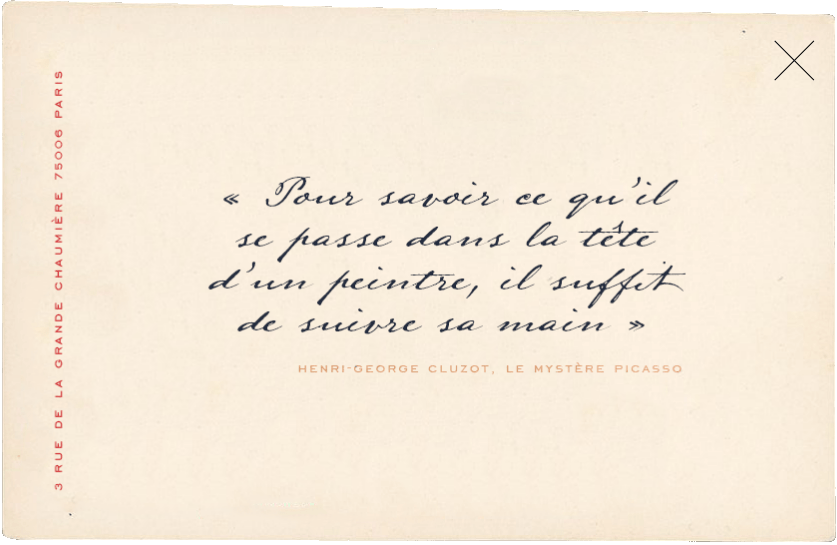 3 RUE DE LA GRANDE CHAUMIÈRE 75006 PARIS
« Pour savoir ce qu'il
se passe dans la tête
d'un peintre, il suffit
de suivre sa main »
HENRI-GEORGE CLUZOT, LE MYSTÈRE PICASSO